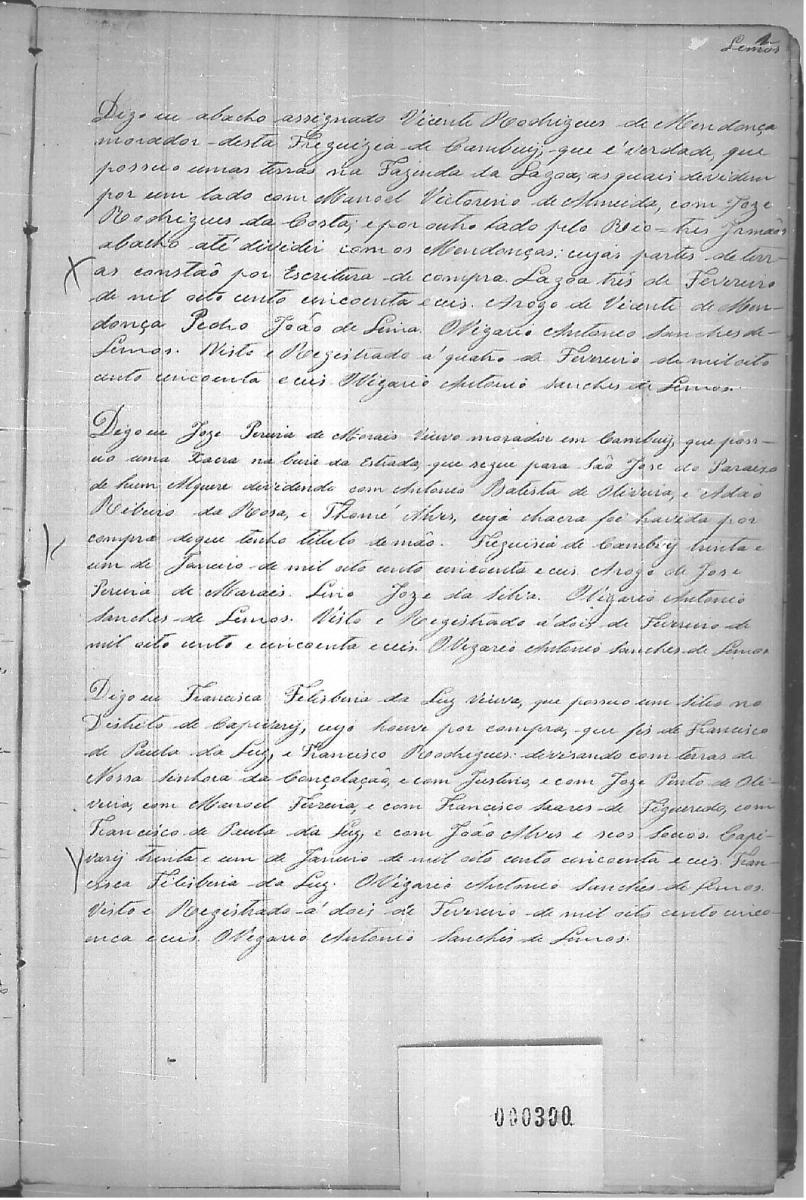 1
Lemos
Digo eu abacho assignado Vicente Rodrigues de Mendonça
morador desta Freguizia de Cambuy, que é verdade, que
possuo umas terras na Fazenda da Lagoa, as quais devidem
por um lado com Manoel Victorino de Almeida, com Joze
Rodrigues da Costa; e por outro lado pelo Rio-tres Irmãos
abacho até dividir com os Mendonças: cujas partes de terr-
as constão por Escritura de compra. Lagoa três de Fevereiro
de mil oito cento cincoenta e ceis. Arogo de Vicente de Men-
donça Pedro João de Lima. OVigario Antonio Sanches de
Lemos. Visto e Registrado á quatro de Fevereiro de mil oito
cento cincoenta e ceis. OVigario Antonio Sanches de Lemos.
Digo eu Joze Pereira de Morais Viuvo morador em Cambuy, que poss-
uo uma Xacra na beira da Estrada, que segue para São Jose do Paraizo
de hum Alquere dividindo com Antonio Batista de Oliveira, e Adão
Ribeiro da Rosa, e Thomé Alves, cuja chacra foi havida por
compra de que tenho titulo de mão. Freguisia de Cambuy trinta e
um de Janeiro de mil oito cento cincoenta e ceis. Arogo de Jose
Pereira de Moraes. Lino Joze da Silva. OVigario Antonio
Sanches de Lemos. Visto e Registrado á dois de Fevereiro de
mil oito cento e cincoenta e ceis. OVigario Antonio Sanches de Lemos
Digo eu Francisca Felisberia da Luz Viuva, que possuo um sitio no
Distrito de Capivary, cujo houve por compra, que fis de Francisco
de Paula da Luz, e Francisco Rodrigues: devisando com terras de
Nossa Senhora da Conçolação, e com Justino, e com Joze Pinto de Oli-
veira, com Manoel Ferreira, e com Francisco Soares de Figueredo, com
Francisco de Paula da Luz, e com João Alves e seos Socios. Capi-
vary trinta e um de Janeiro de mil oito cento cincoenta e ceis. Fran-
cisca Felisberia da Luz. OVigario Antonio Sanches de Lemos.
Visto e Registrado á dois de Fevereiro de mil oito cento cinco-
enca e ceis. OVigario Antonio Sanches de Lemos.
000300